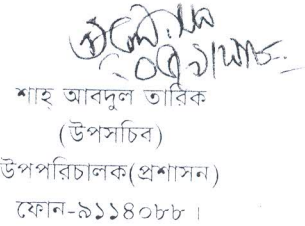 শাহ্ আবদুল তারিক
(উপসচিব)
উপপরিচালক(প্রশাসন)
ফোন-৯১১৪০৮৮ ।